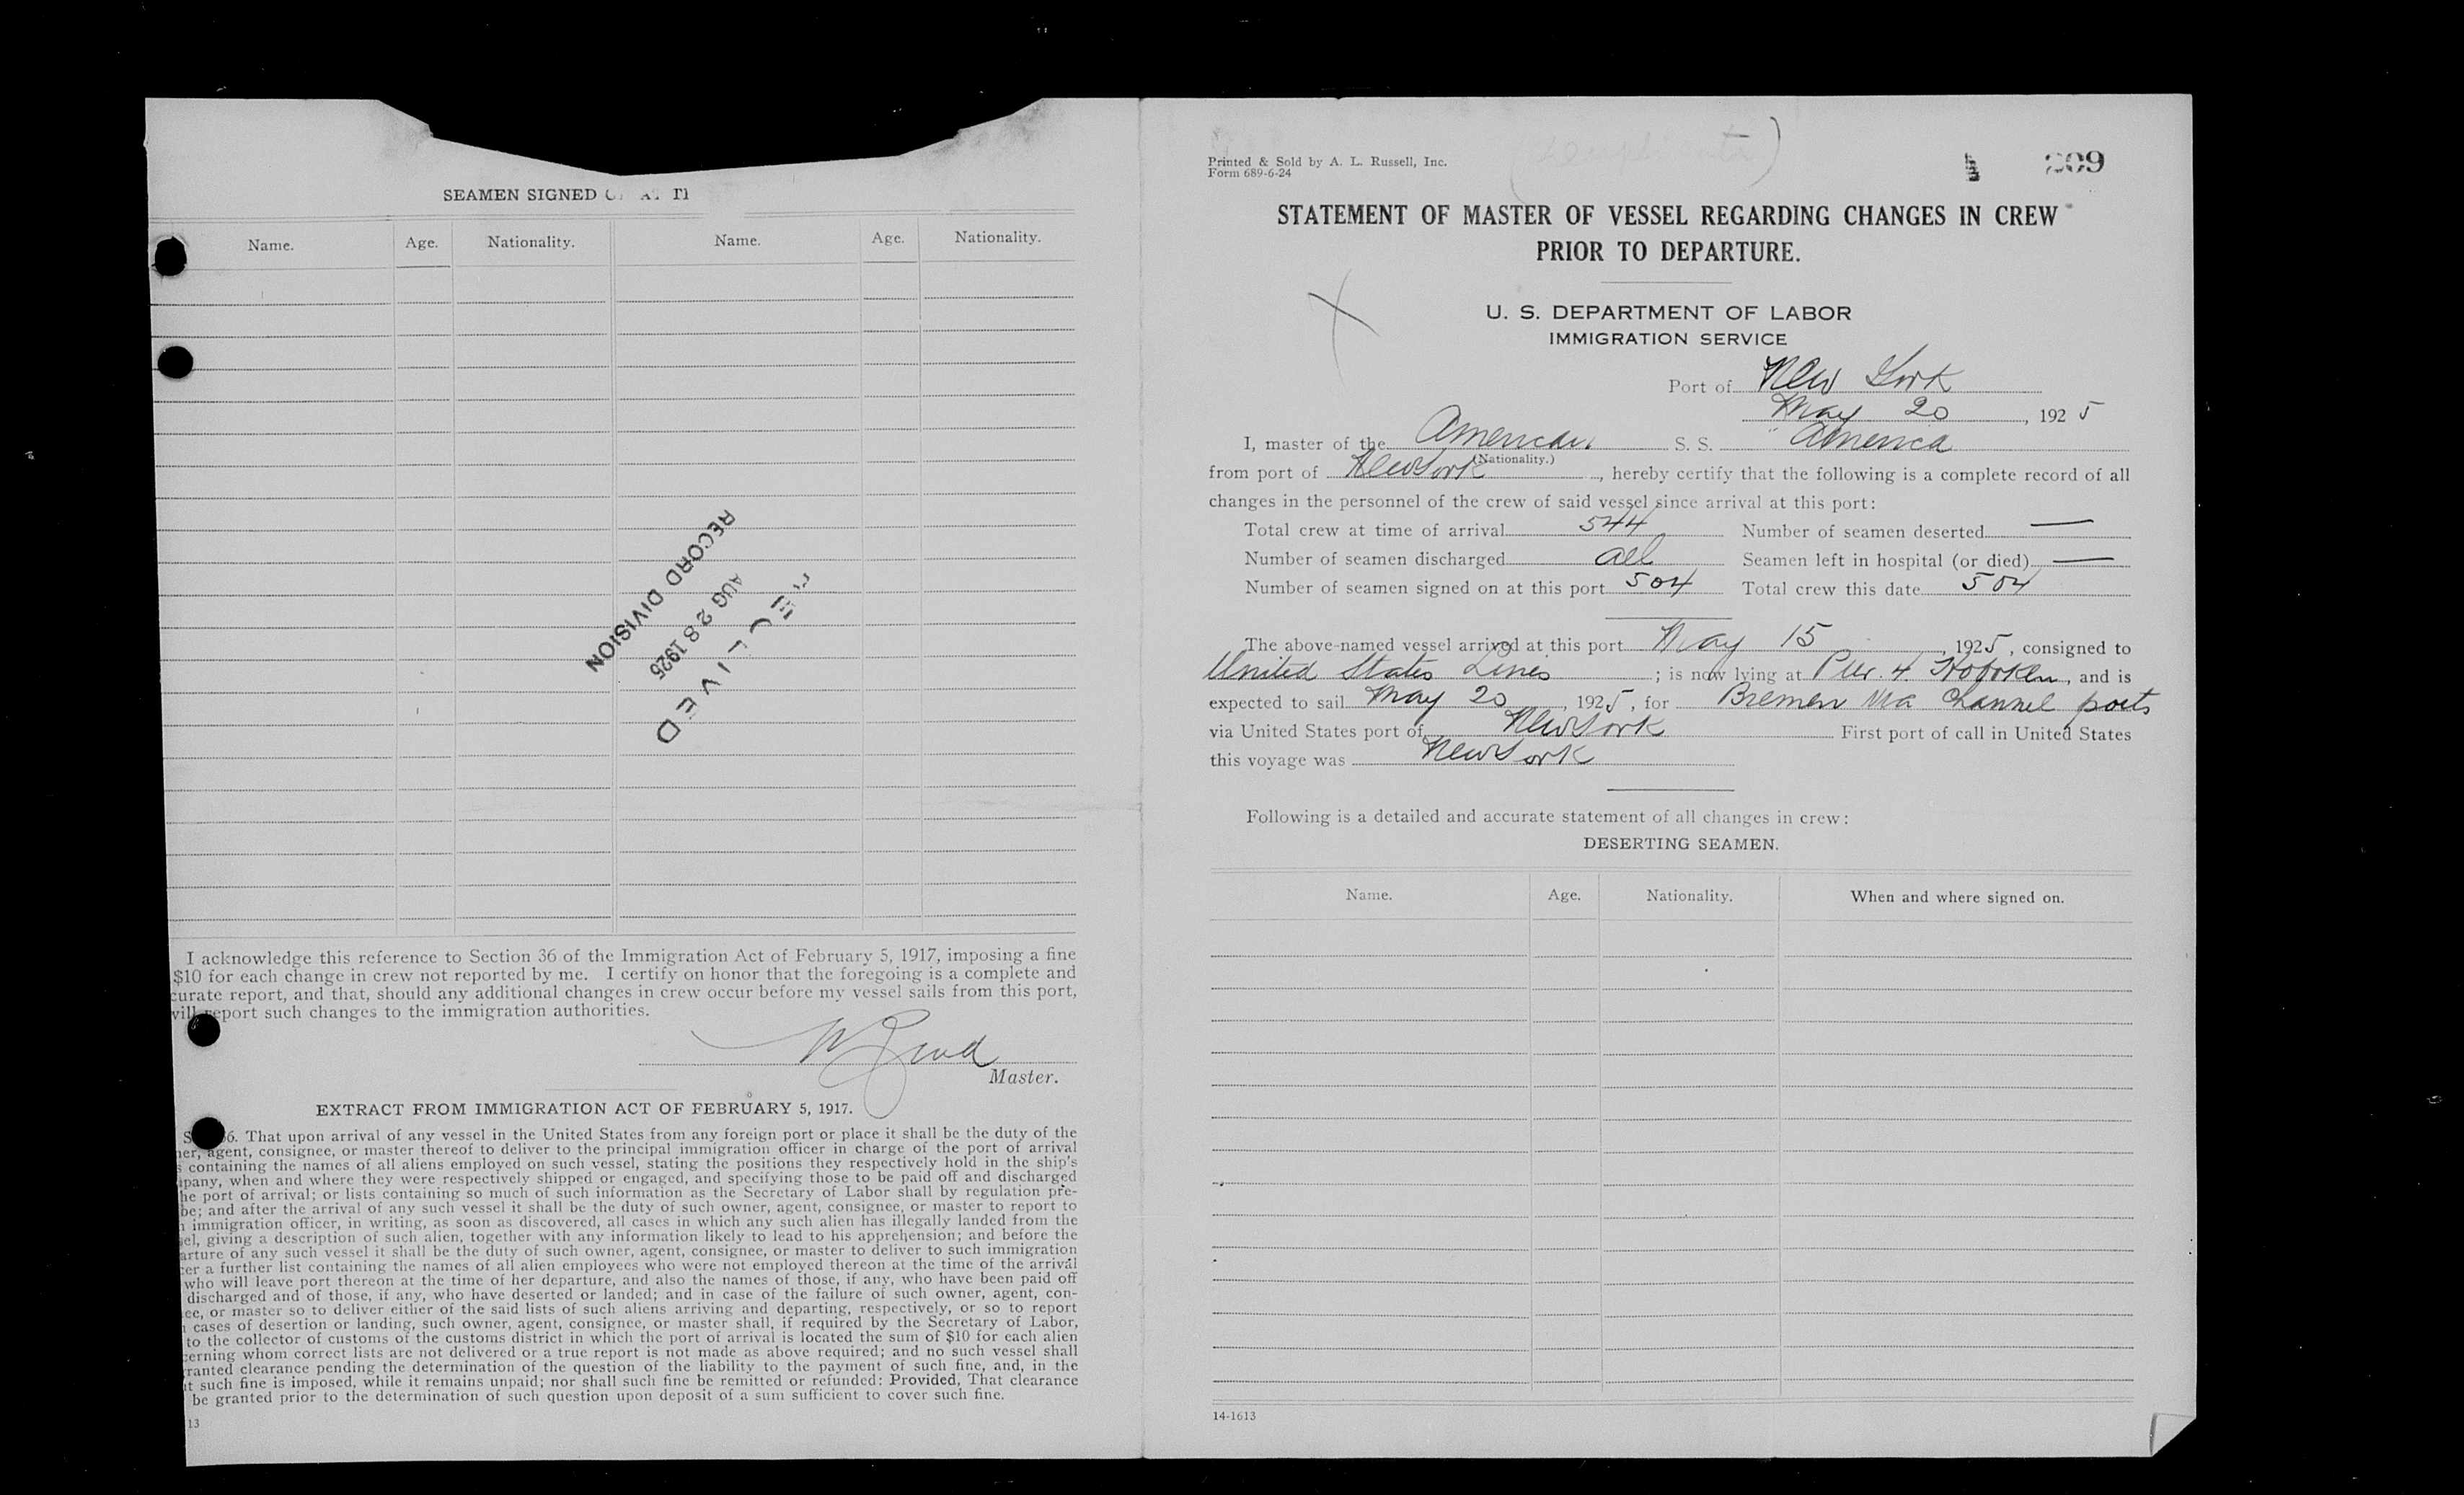 SEAMEN SIGNED
Name. Age. Nationality. Name. Age. Nationality.
RECEIVED
AUG 28 1925
RECORD DIVISION
I acknowledge this reference to Section 36 of the Immigration Act of February 5, 1917, imposing a fine
$10 for each change in crew not reported by me. I certify on honor that the foregoing is a complete and
curate report, and that, should any additional changes in crew occur before my vessel sails from this port,
will report such changes to the immigration authorities.
Master.
EXTRACT FROM IMMIGRATION ACT OF FEBRUARY 5, 1917.
S 36. That upon arrival of any vessel in the United States from any foreign port or place it shall be the duty of the
ner, agent, consignee, or master thereof to deliver to the principal immigration officer in charge of the port of arrival
s containing the names of all aliens employed on such vessel, stating the positions they respectively hold in the ship's
pany, when and where they were respectively shipped or engaged, and specifying those to be paid off and discharged
he port of arrival; or lists containing so much of such information as the Secretary of Labor shall by regulation pre-
be; and after the arrival of any such vessel it shall be the duty of such owner, agent, consignee, or master to report to
h immigration officer, in writing, as soon as discovered, all cases in which any such alien has illegally landed from the
sel, giving a description of such alien, together with any information likely to lead to his apprehension; and before the
arture of any such vessel it shall be the duty of such owner, agent, consignee, or master to deliver to such immigration
cer a further list containing the names of all alien employees who were not employed thereon at the time of the arrival
who will leave port thereon at the time of her departure, and also the names of those, if any, who have been paid off
discharged and of those, if any, who have deserted or landed; and in case of the failure of such owner, agent, con-
ee, or master so to deliver either of the said lists of such aliens arriving and departing, respectively, or so to report
h cases of desertion or landing, such owner, agent, consignee, or master shall, if required by the Secretary of Labor,
to the collector of customs of the customs district in which the port of arrival is located the sum of $10 for each alien
cerning whom correct lists are not delivered or a true report is not made as above required; and no such vessel shall
ranted clearance pending the determination of the question of the liability to the payment of such fine, and, in the
nt such fine is imposed, while it remains unpaid; nor shall such fine be remitted or refunded: Provided, That clearance
be granted prior to the determination of such question upon deposit of a sum sufficient to cover such fine.
13
Printed & Sold by A. L. Russell, Inc.
Form 689-6-24
209
STATEMENT OF MASTER OF VESSEL REGARDING CHANGES IN CREW
PRIOR TO DEPARTURE.
U. S. DEPARTMENT OF LABOR
IMMIGRATION SERVICE
Port of New York
May 20, 1925
I, master of the American S. S. "America
(Nationality.)
from port of New York, hereby certify that the following is a complete record of all
changes in the personnel of the crew of said vessel since arrival at this port:
Total crew at time of arrival 544 Number of seamen deserted —
Number of seamen discharged all Seamen left in hospital (or died) —
Number of seamen signed on at this port 504 Total crew this date 504
The above-named vessel arrived at this port May 15, 1925, consigned to
United States Lines; is now lying at Pier. 4 Hoboken, and is
expected to sail May 20, 1925, for Bremen via Channel ports
via United States port of New York First port of call in United States
this voyage was New York
Following is a detailed and accurate statement of all changes in crew:
DESERTING SEAMEN.
Name. Age. Nationality. When and where signed on.
14-1613